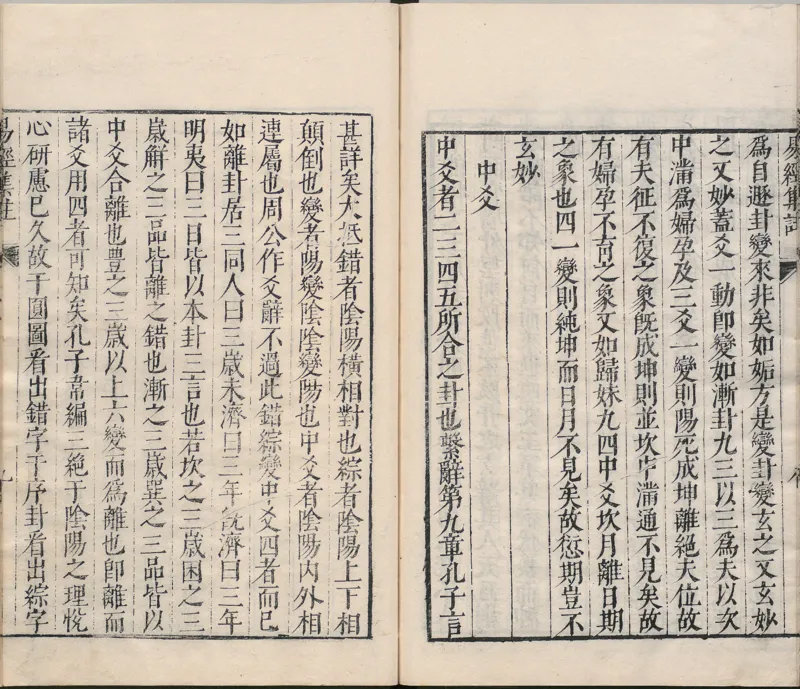 易經集註
爲自遯卦變來非矣如姤方是變卦變玄之又玄妙
之又妙蓋爻一動卽變如漸卦九三以三爲夫以次
中滿爲婦孕及三爻一變則陽死成坤離絶夫位故
有夫征不復之象旣成坤則並坎中滿通不見矣故
有婦孕不育之象又如歸妹九四中爻坎月離日期
之象也四一變則純坤而日月不見矣故愆期豈不
玄妙
中爻
中爻者二三四五所合之卦也繫辭第九章孔子言
甚詳矣大抵錯者陰陽橫相對也綜者陰陽上下相
顛倒也變者陽變陰陰變陽也中爻者陰陽内外相
連屬也周公作爻辭不過此錯綜變中爻四者而已
如離卦居三同人曰三歲未濟曰三年旣濟曰三年
明夷曰三日皆以本卦三言也若坎之三歲困之三
歲解之三品皆離之錯也漸之三歲巽之三品皆以
中爻合離也豐之三歲以上六變而爲離也卽離而
諸爻用四者可知矣孔子韋編三絶于陰陽之理悅
心研慮已久故于圓圖看出錯字于序卦看出綜字
易經集註
九